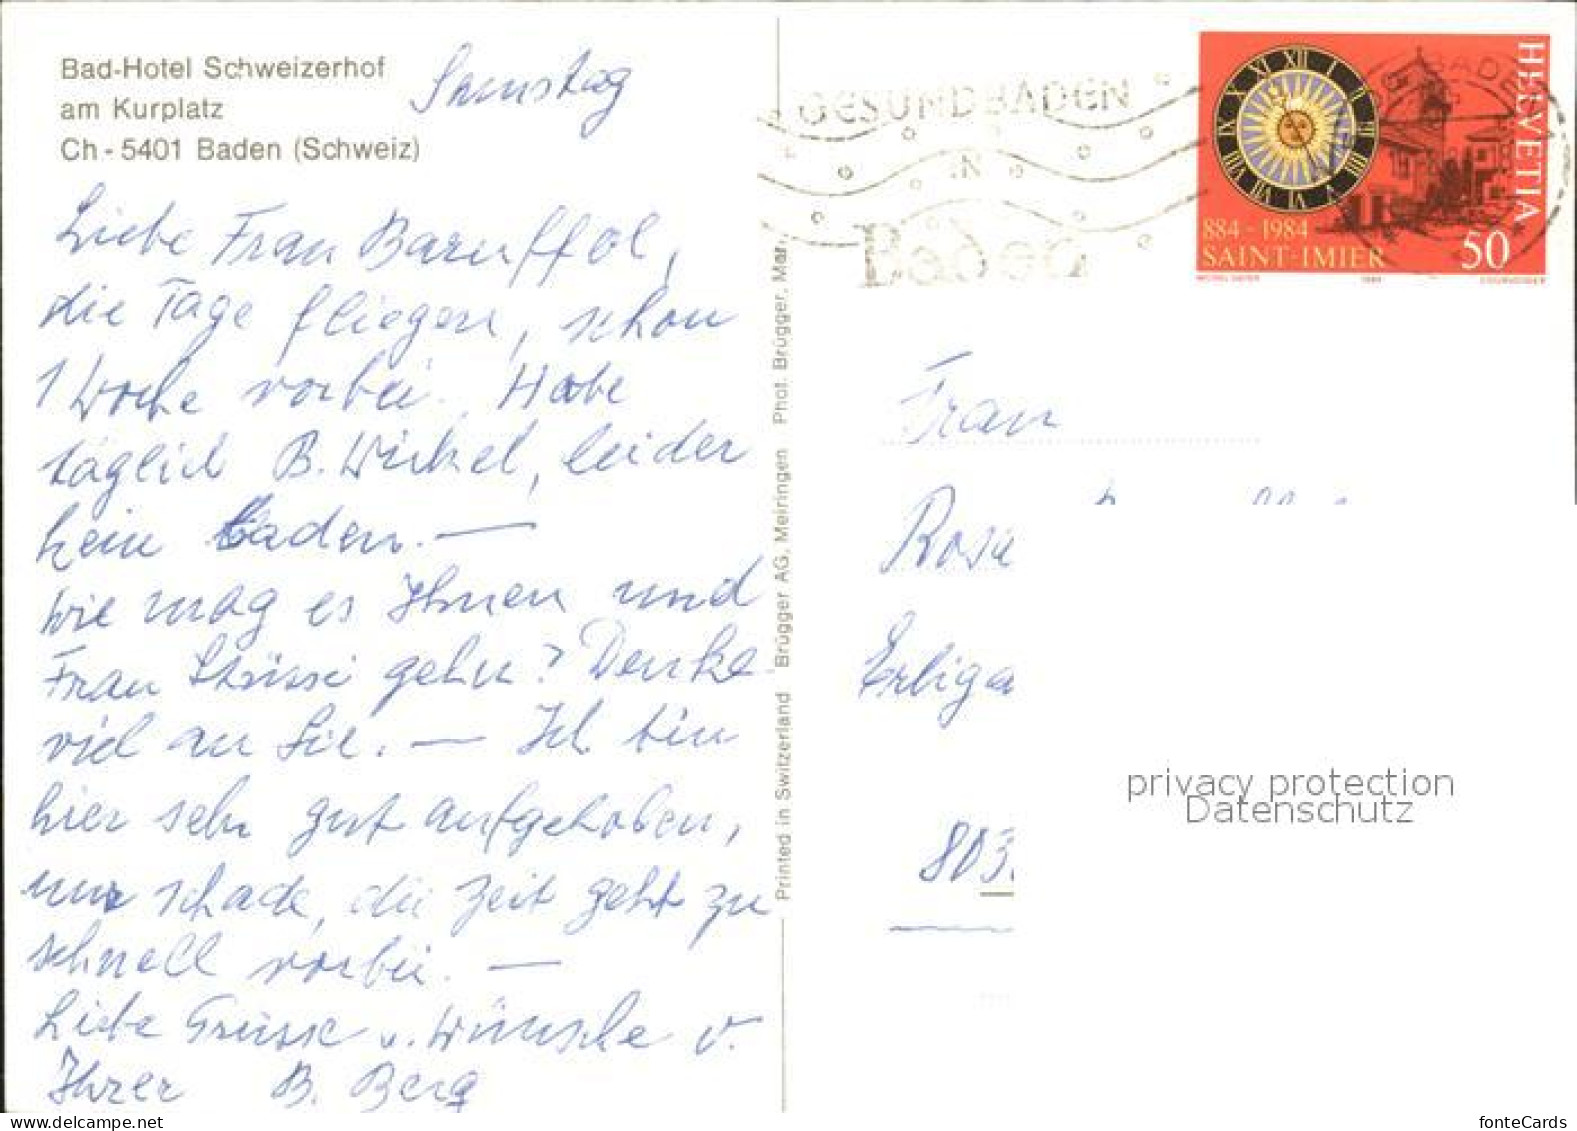 Bad-Hotel Schweizerhof
am Kurplatz
Ch - 5401 Baden (Schweiz)
Samstag
Liebe Frau Baruffol,
die Tage fliegen, schon
1 Woche vorbei. Habe
täglich B. Wickel, leider
kein Baden. —
Wie mag es Ihnen und
Frau Stüssi gehn? Denke
viel an Sie. — Ich bin
hier sehr gut aufgehoben,
nur schade, die Zeit geht zu
schnell vorbei. —
Liebe Grüsse u. Wünsche v.
Ihrer B. Berg
Printed in Switzerland Brügger AG, Meiringen Phot. Brügger, Mar.
GESUND BADEN
IN
Baden
BADEN
HELVETIA
XII I II III IIII V VI VII VIII IX X XI
884 - 1984
SAINT-IMIER
50
1984
COURVOISIER
Frau
Rosa
Erliga
803
privacy protection
Datenschutz
fonteCards